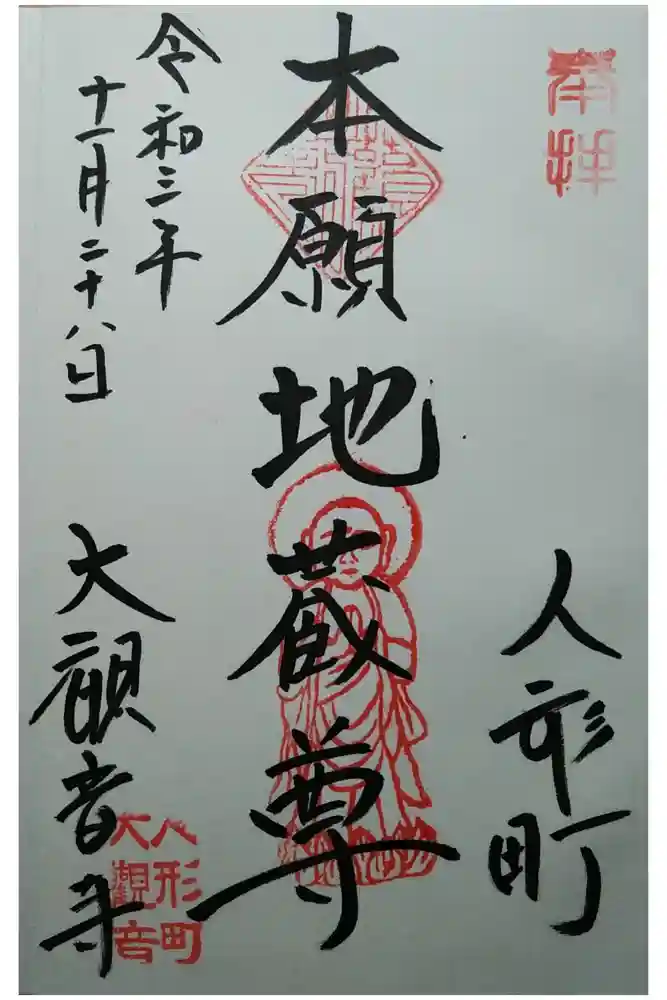 奉拝
人形町
本願地蔵尊
令和三年
十一月二十八日
大観音寺
人形町
大觀音